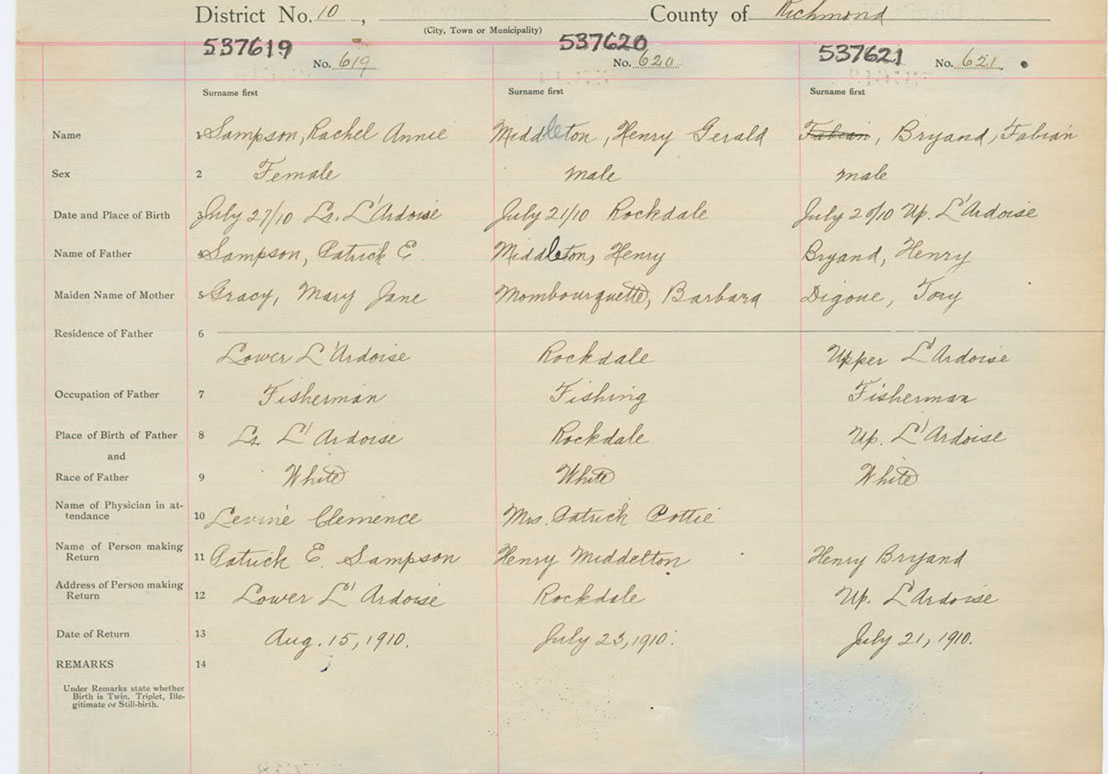 District No. 10 , County of Richmond
(City, Town or Municipality)
537619 537620 537621
No. 619 No. 620 No. 621
Surname first Surname first Surname first
Name 1 Sampson, Rachel Annie Middleton, Henry Gerald Fabian, Bryand, Fabian
Sex 2 Female male male
Date and Place of Birth 3 July 27/10 Lr. L'Ardoise July 21/10 Rockdale July 20/10 Up. L'Ardoise
Name of Father 4 Sampson, Patrick E. Middleton, Henry Bryand, Henry
Maiden Name of Mother 5 Gracy, Mary Jane Mombourquette, Barbara Digoue, Tory
Residence of Father 6
Lower L'Ardoise Rockdale Upper L'Ardoise
Occupation of Father 7 Fisherman Fishing Fisherman
Place of Birth of Father 8 Lr. L'Ardoise Rockdale Up. L'Ardoise
and
Race of Father 9 White White White
Name of Physician in at-
tendance 10 Levine Clemence Mrs. Patrick Pottie
Name of Person making
Return 11 Patrick E. Sampson Henry Middelton Henry Bryand
Address of Person making
Return 12 Lower L'Ardoise Rockdale Up. L'Ardoise
Date of Return 13 Aug. 15, 1910. July 23, 1910. July 21, 1910.
REMARKS 14
Under Remarks state whether
Birth is Twin, Triplet, Ille-
gitimate or Still-birth.